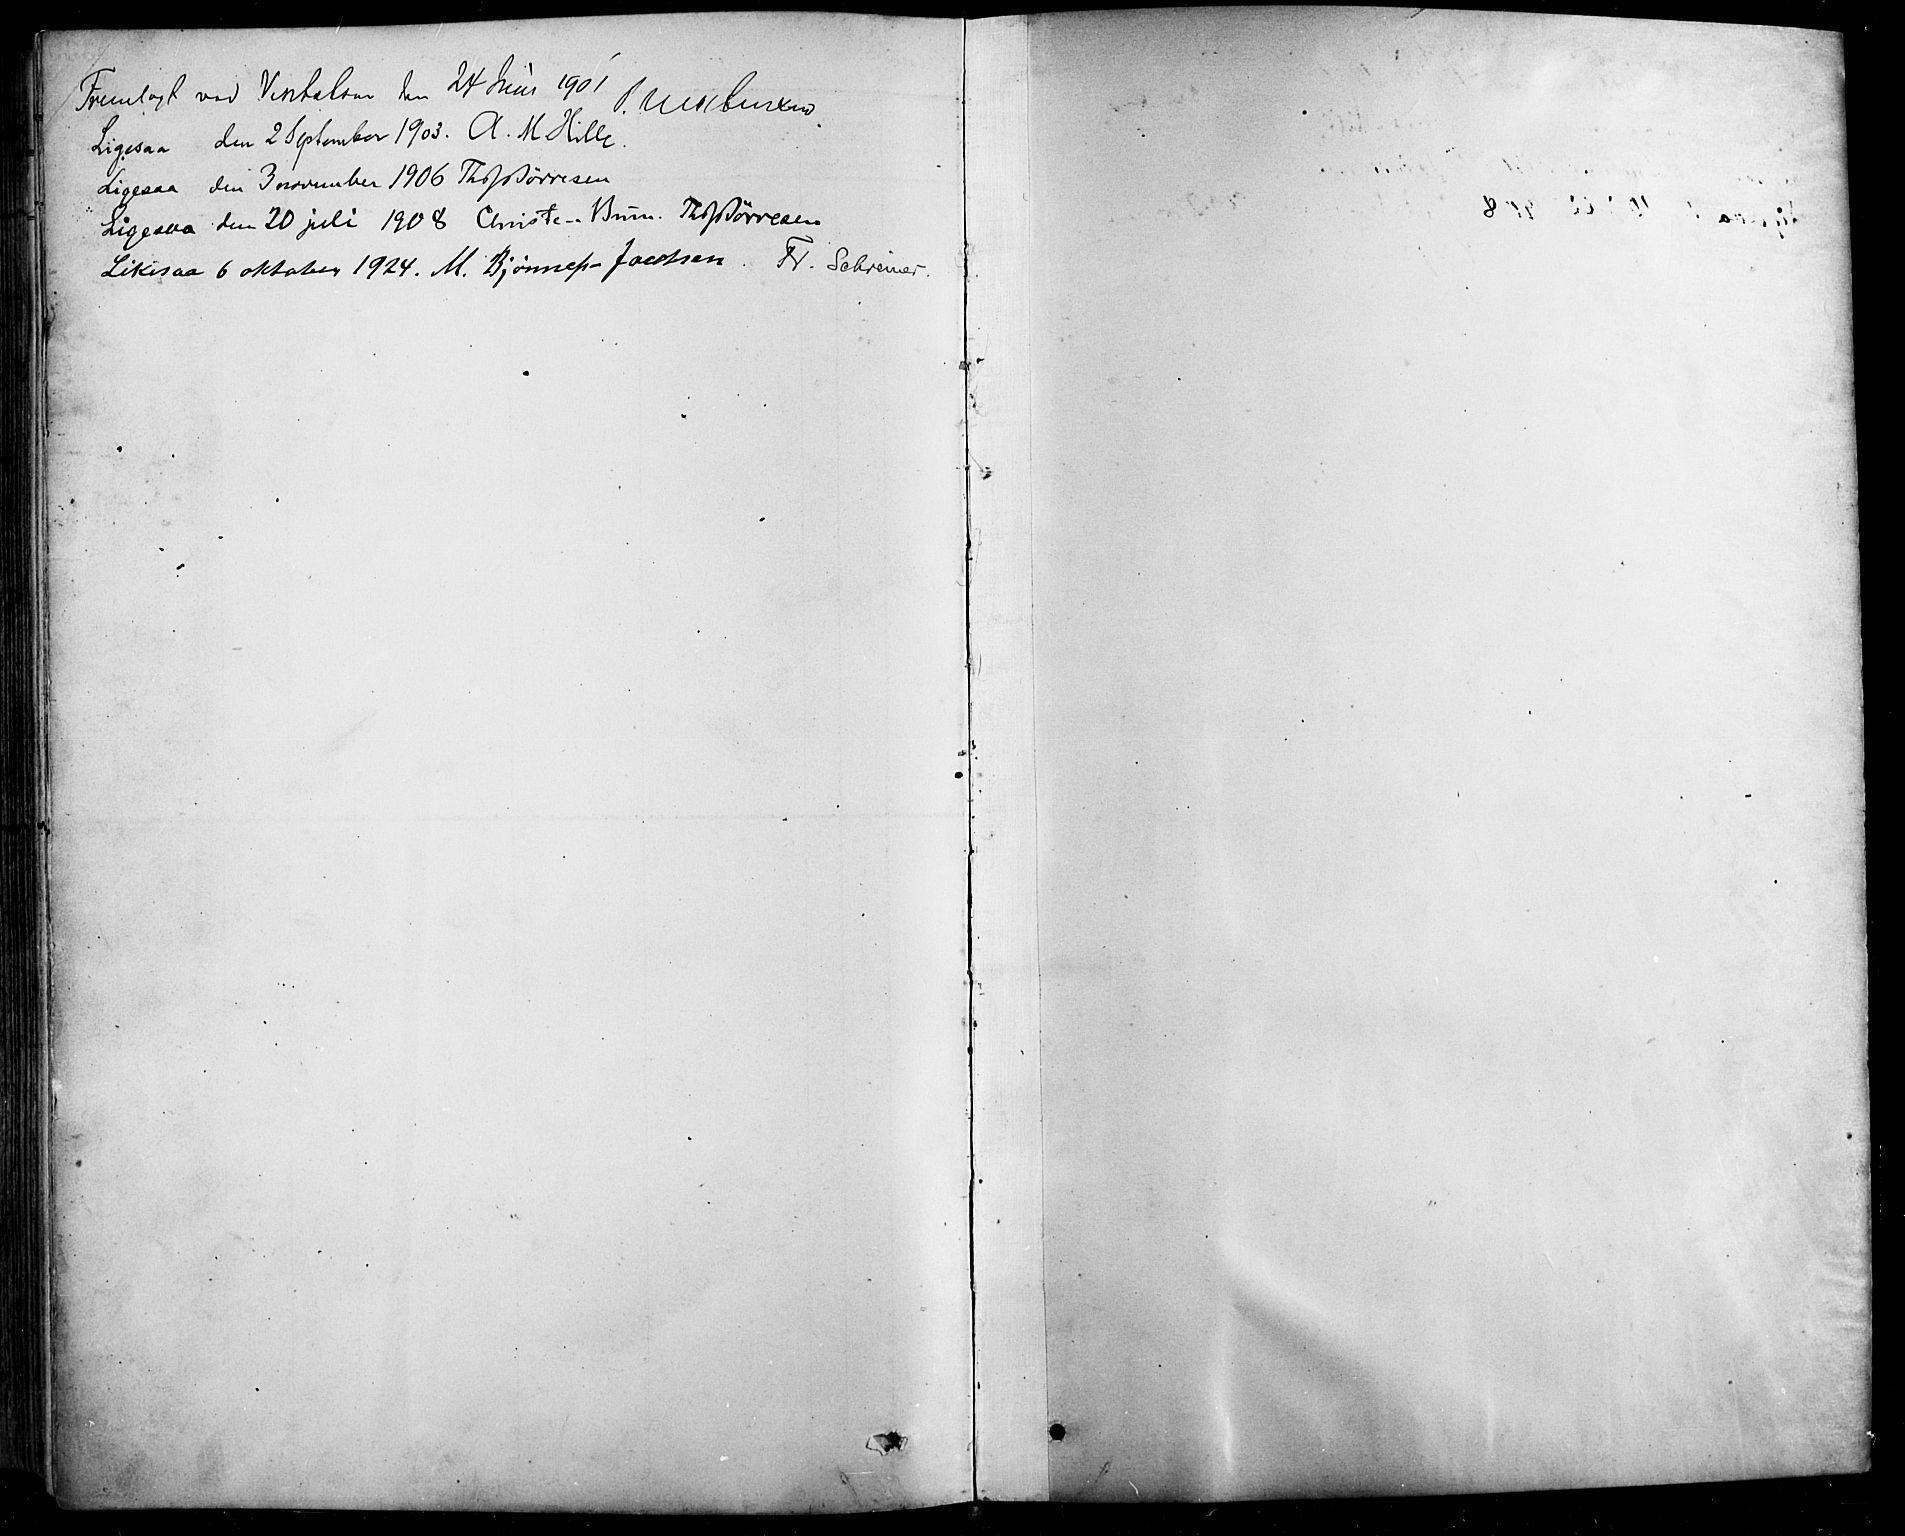 Fremlagt ved Visitatsen den 24 Juni 1901
Ligesaa den 2 September 1903. A. M Hille.
Ligesaa den 3 november 1906 Thv Dörresen
Ligesaa den 20 juli 1908 Christe-. Bruu. Thv Dörresen
Likesaa 6 oktober 1924. M. Bjønnes-Jacobsen Fr. Schreiner.